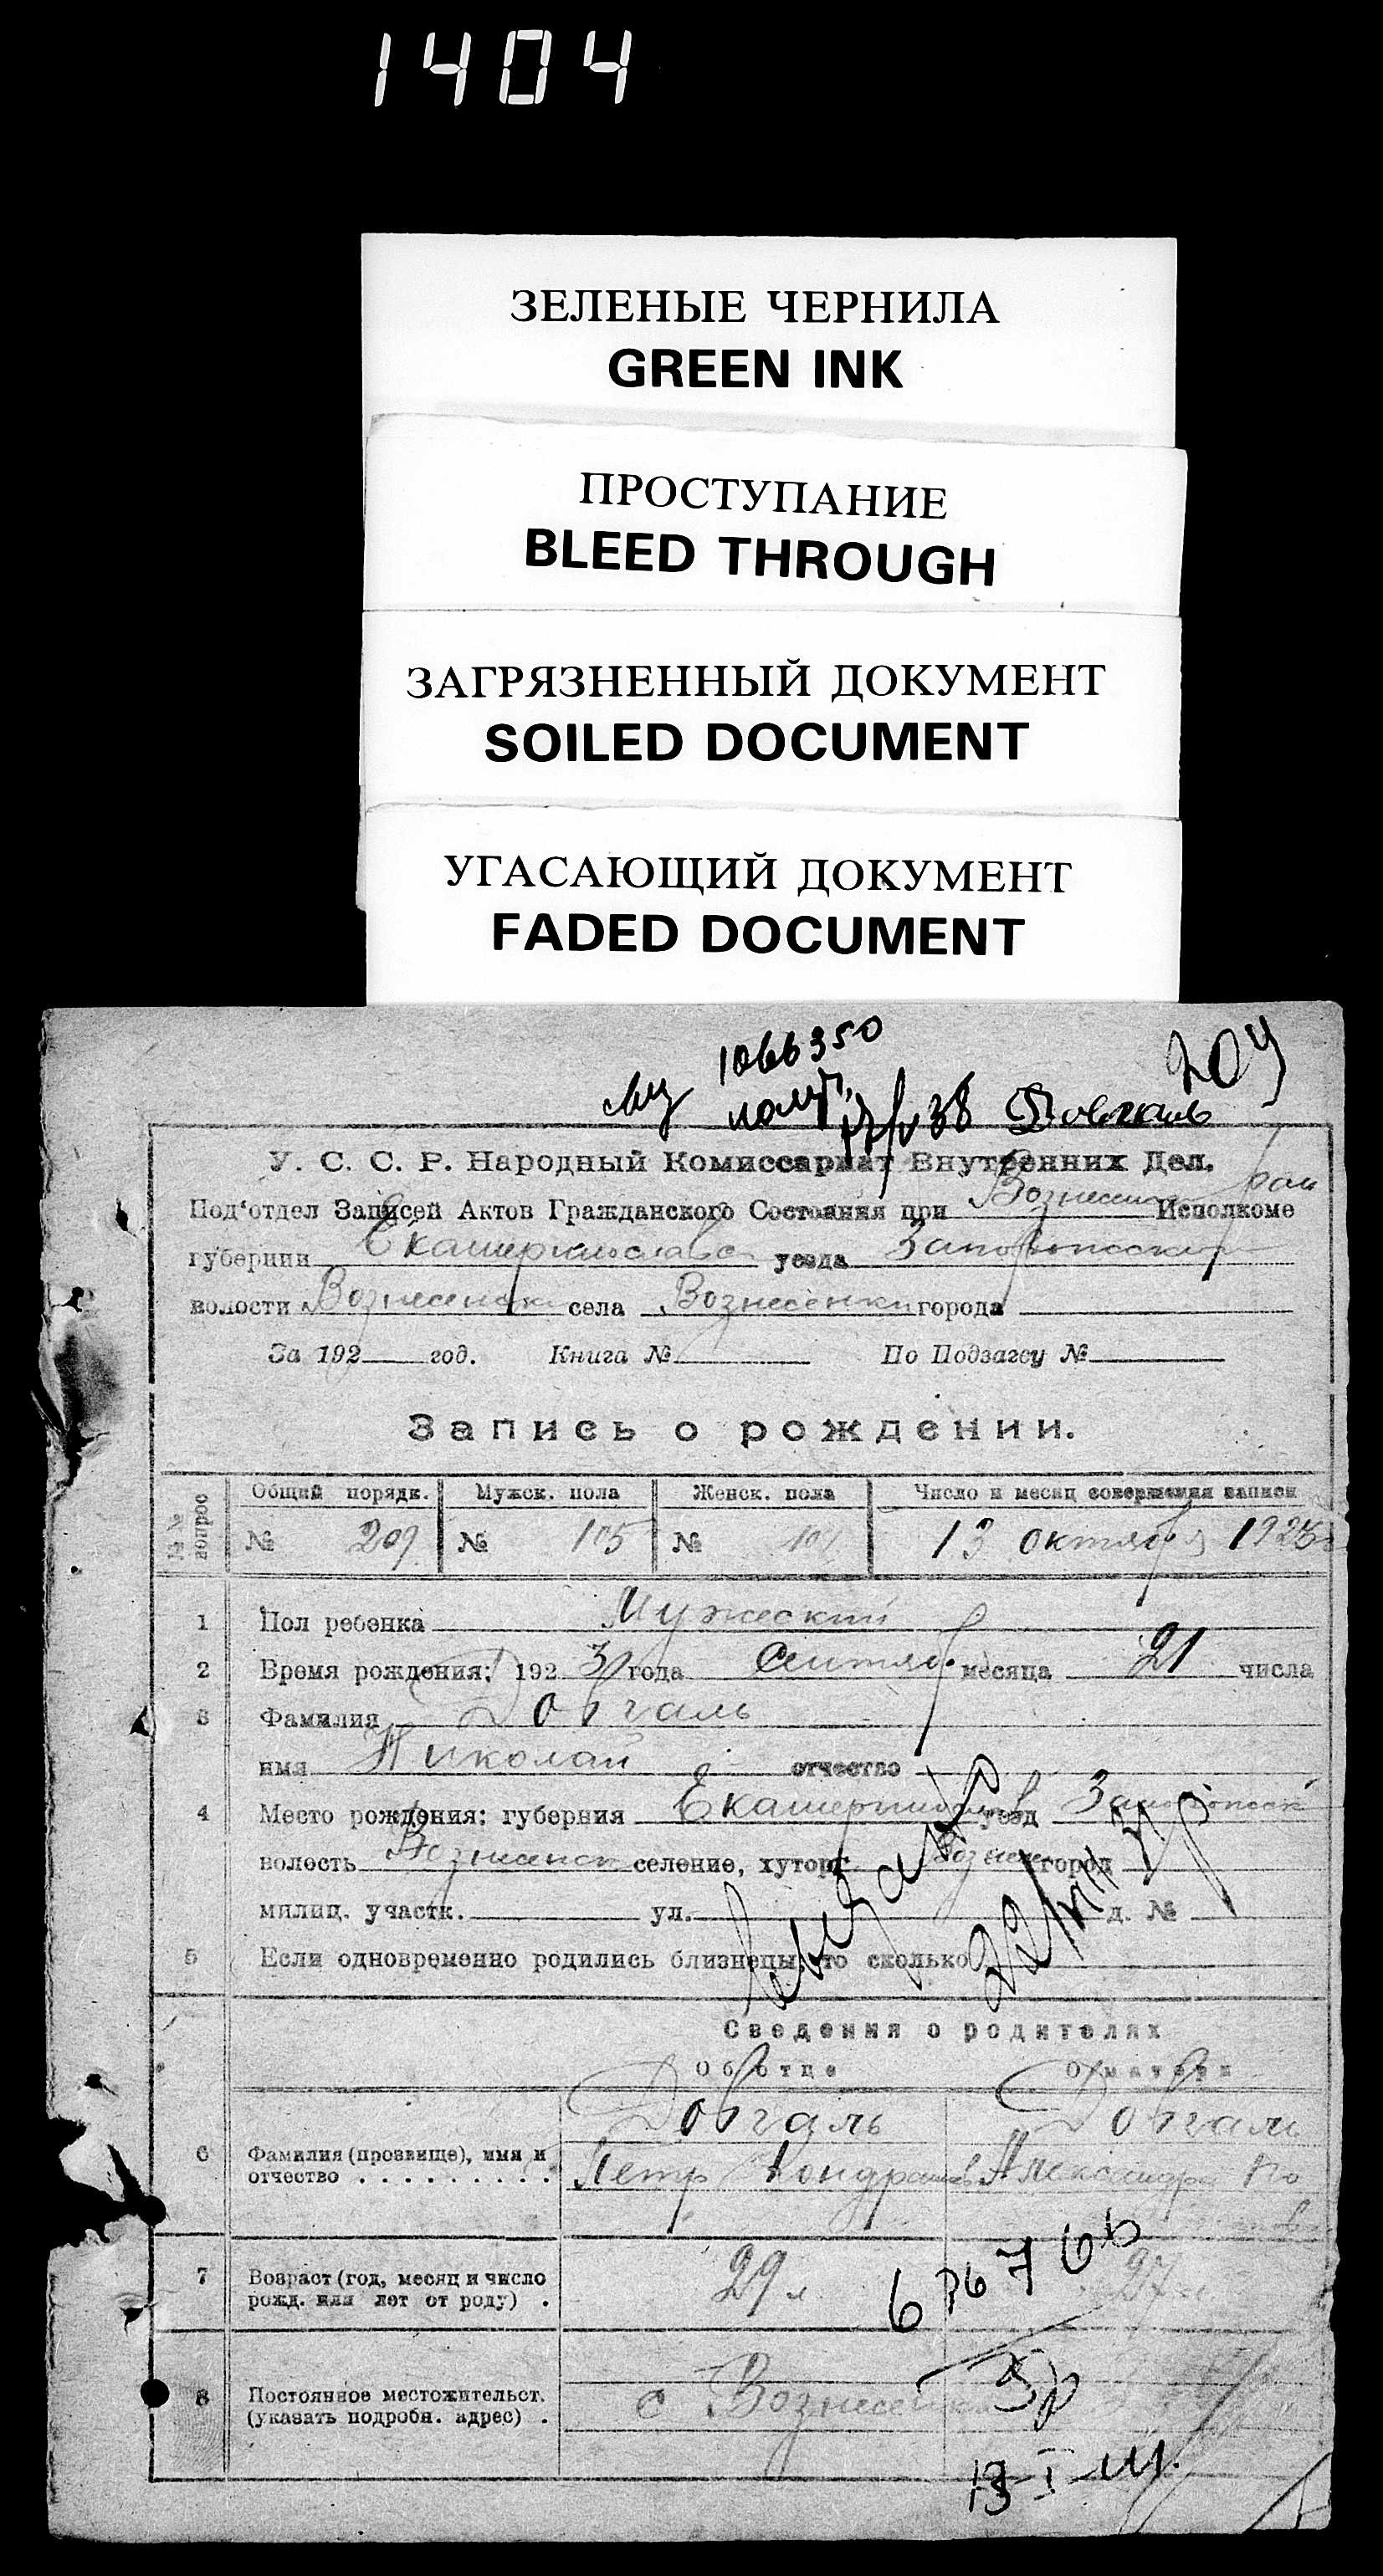 1404
ЗЕЛЕНЫЕ ЧЕРНИЛА
GREEN INK
ПРОСТУПАНИЕ
BLEED THROUGH
ЗАГРЯЗНЕННЫЙ ДОКУМЕНТ
SOILED DOCUMENT
УГАСАЮЩИЙ ДОКУМЕНТ
FADED DOCUMENT
1066350
204
38 Довгаль
У. С. С. Р. Народный Комиссариат Внутренних Дел.
Под‘отдел Записей Актов Гражданского Состояния при Вознесенск рай Исполкоме
губернии Екатеринославск уезда Запорожский
волости Вознесенск села Вознесенки города
За 192 год. Книга № По Подзагсу №
Запись о рождении.
№№ вопрос Общий порядк. Мужск. пола Женск. пола Число и месяц совершения записи
№ 209 № 105 № 13 октября
1 Пол ребенка Мужеский
2 Время рождения: 192 3 года Сентяб. месяца 21 числа
3 Фамилия Довгаль
имя Николай отчество
4 Место рождения: губерния Екатеринослав уезд Запорожск
волость Вознесенск селение, хутор Вознесен город
милиц. участк. ул. д. №
5 Если одновременно родились близнецы, то сколько
Сведения о родителях
Об отце О матери
Довгаль Довгаль
6 Фамилия (прозвище), имя и отчество Петр Кондратов Александра
7 Возраст (год, месяц и число рожд. или лет от роду) 29 л 27
8 Постоянное местожительст. (указать подробн. адрес) с Вознесенка